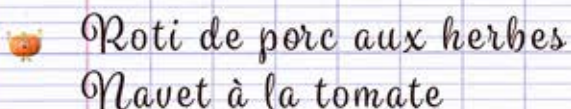 Roti de porc aux herbes
Navet à la tomate